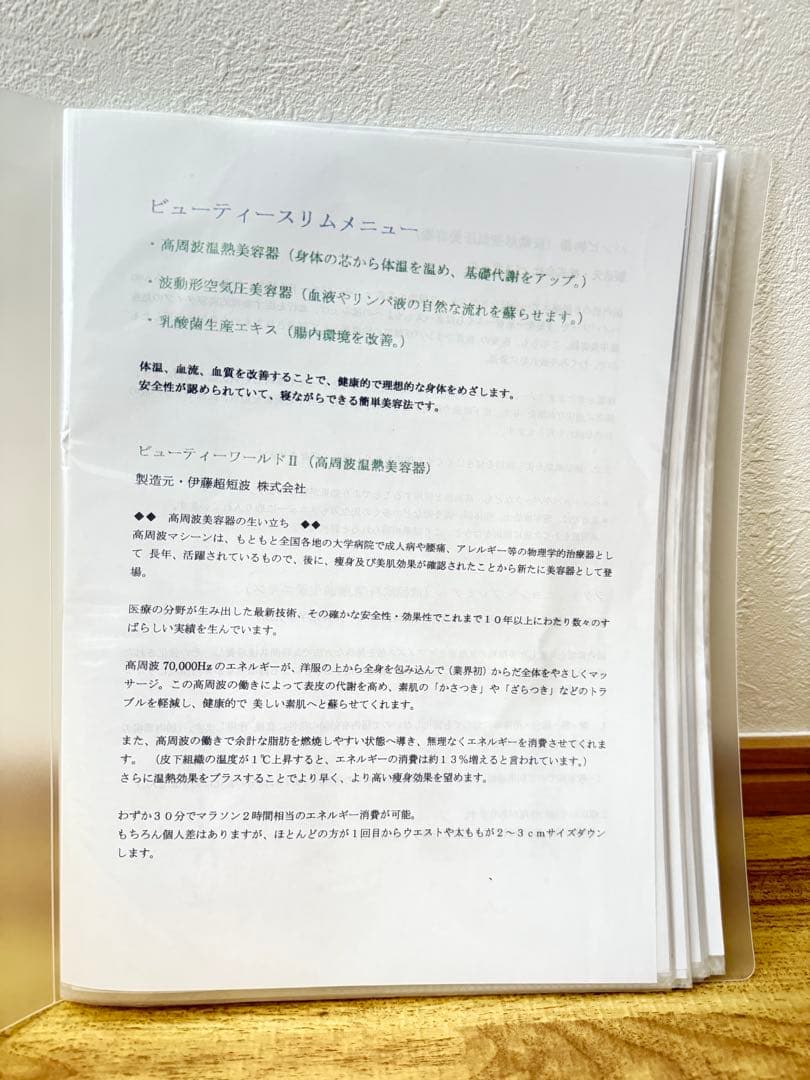 ビューティースリムメニュー
・高周波温熱美容器（身体の芯から体温を温め、基礎代謝をアップ。）
・波動形空気圧美容器（血液やリンパ液の自然な流れを蘇らせます。）
・乳酸菌生産エキス（腸内環境を改善。）
体温、血流、血質を改善することで、健康的で理想的な身体をめざします。
安全性が認められていて、寝ながらできる簡単美容法です。
ビューティーワールドⅡ（高周波温熱美容器）
製造元・伊藤超短波 株式会社
◆◆ 高周波美容器の生い立ち ◆◆
高周波マシーンは、もともと全国各地の大学病院で成人病や腰痛、アレルギー等の物理学的治療器とし
て 長年、活躍されているもので、後に、痩身及び美肌効果が確認されたことから新たに美容器として登
場。
医療の分野が生み出した最新技術、その確かな安全性・効果性でこれまで１０年以上にわたり数々のす
ばらしい実績を生んでいます。
高周波 70,000Hz のエネルギーが、洋服の上から全身を包み込んで（業界初）からだ全体をやさしくマッ
サージ。この高周波の働きによって表皮の代謝を高め、素肌の「かさつき」や「ざらつき」などのトラ
ブルを軽減し、健康的で 美しい素肌へと蘇らせてくれます。
また、高周波の働きで余計な脂肪を燃焼しやすい状態へ導き、無理なくエネルギーを消費させてくれま
す。 （皮下組織の温度が１℃上昇すると、エネルギーの消費は約１３％増えると言われています。）
さらに温熱効果をプラスすることでより早く、より高い痩身効果を望めます。
わずか３０分でマラソン２時間相当のエネルギー消費が可能。
もちろん個人差はありますが、ほとんどの方が１回目からウエストや太ももが２～３ｃｍサイズダウン
します。
、